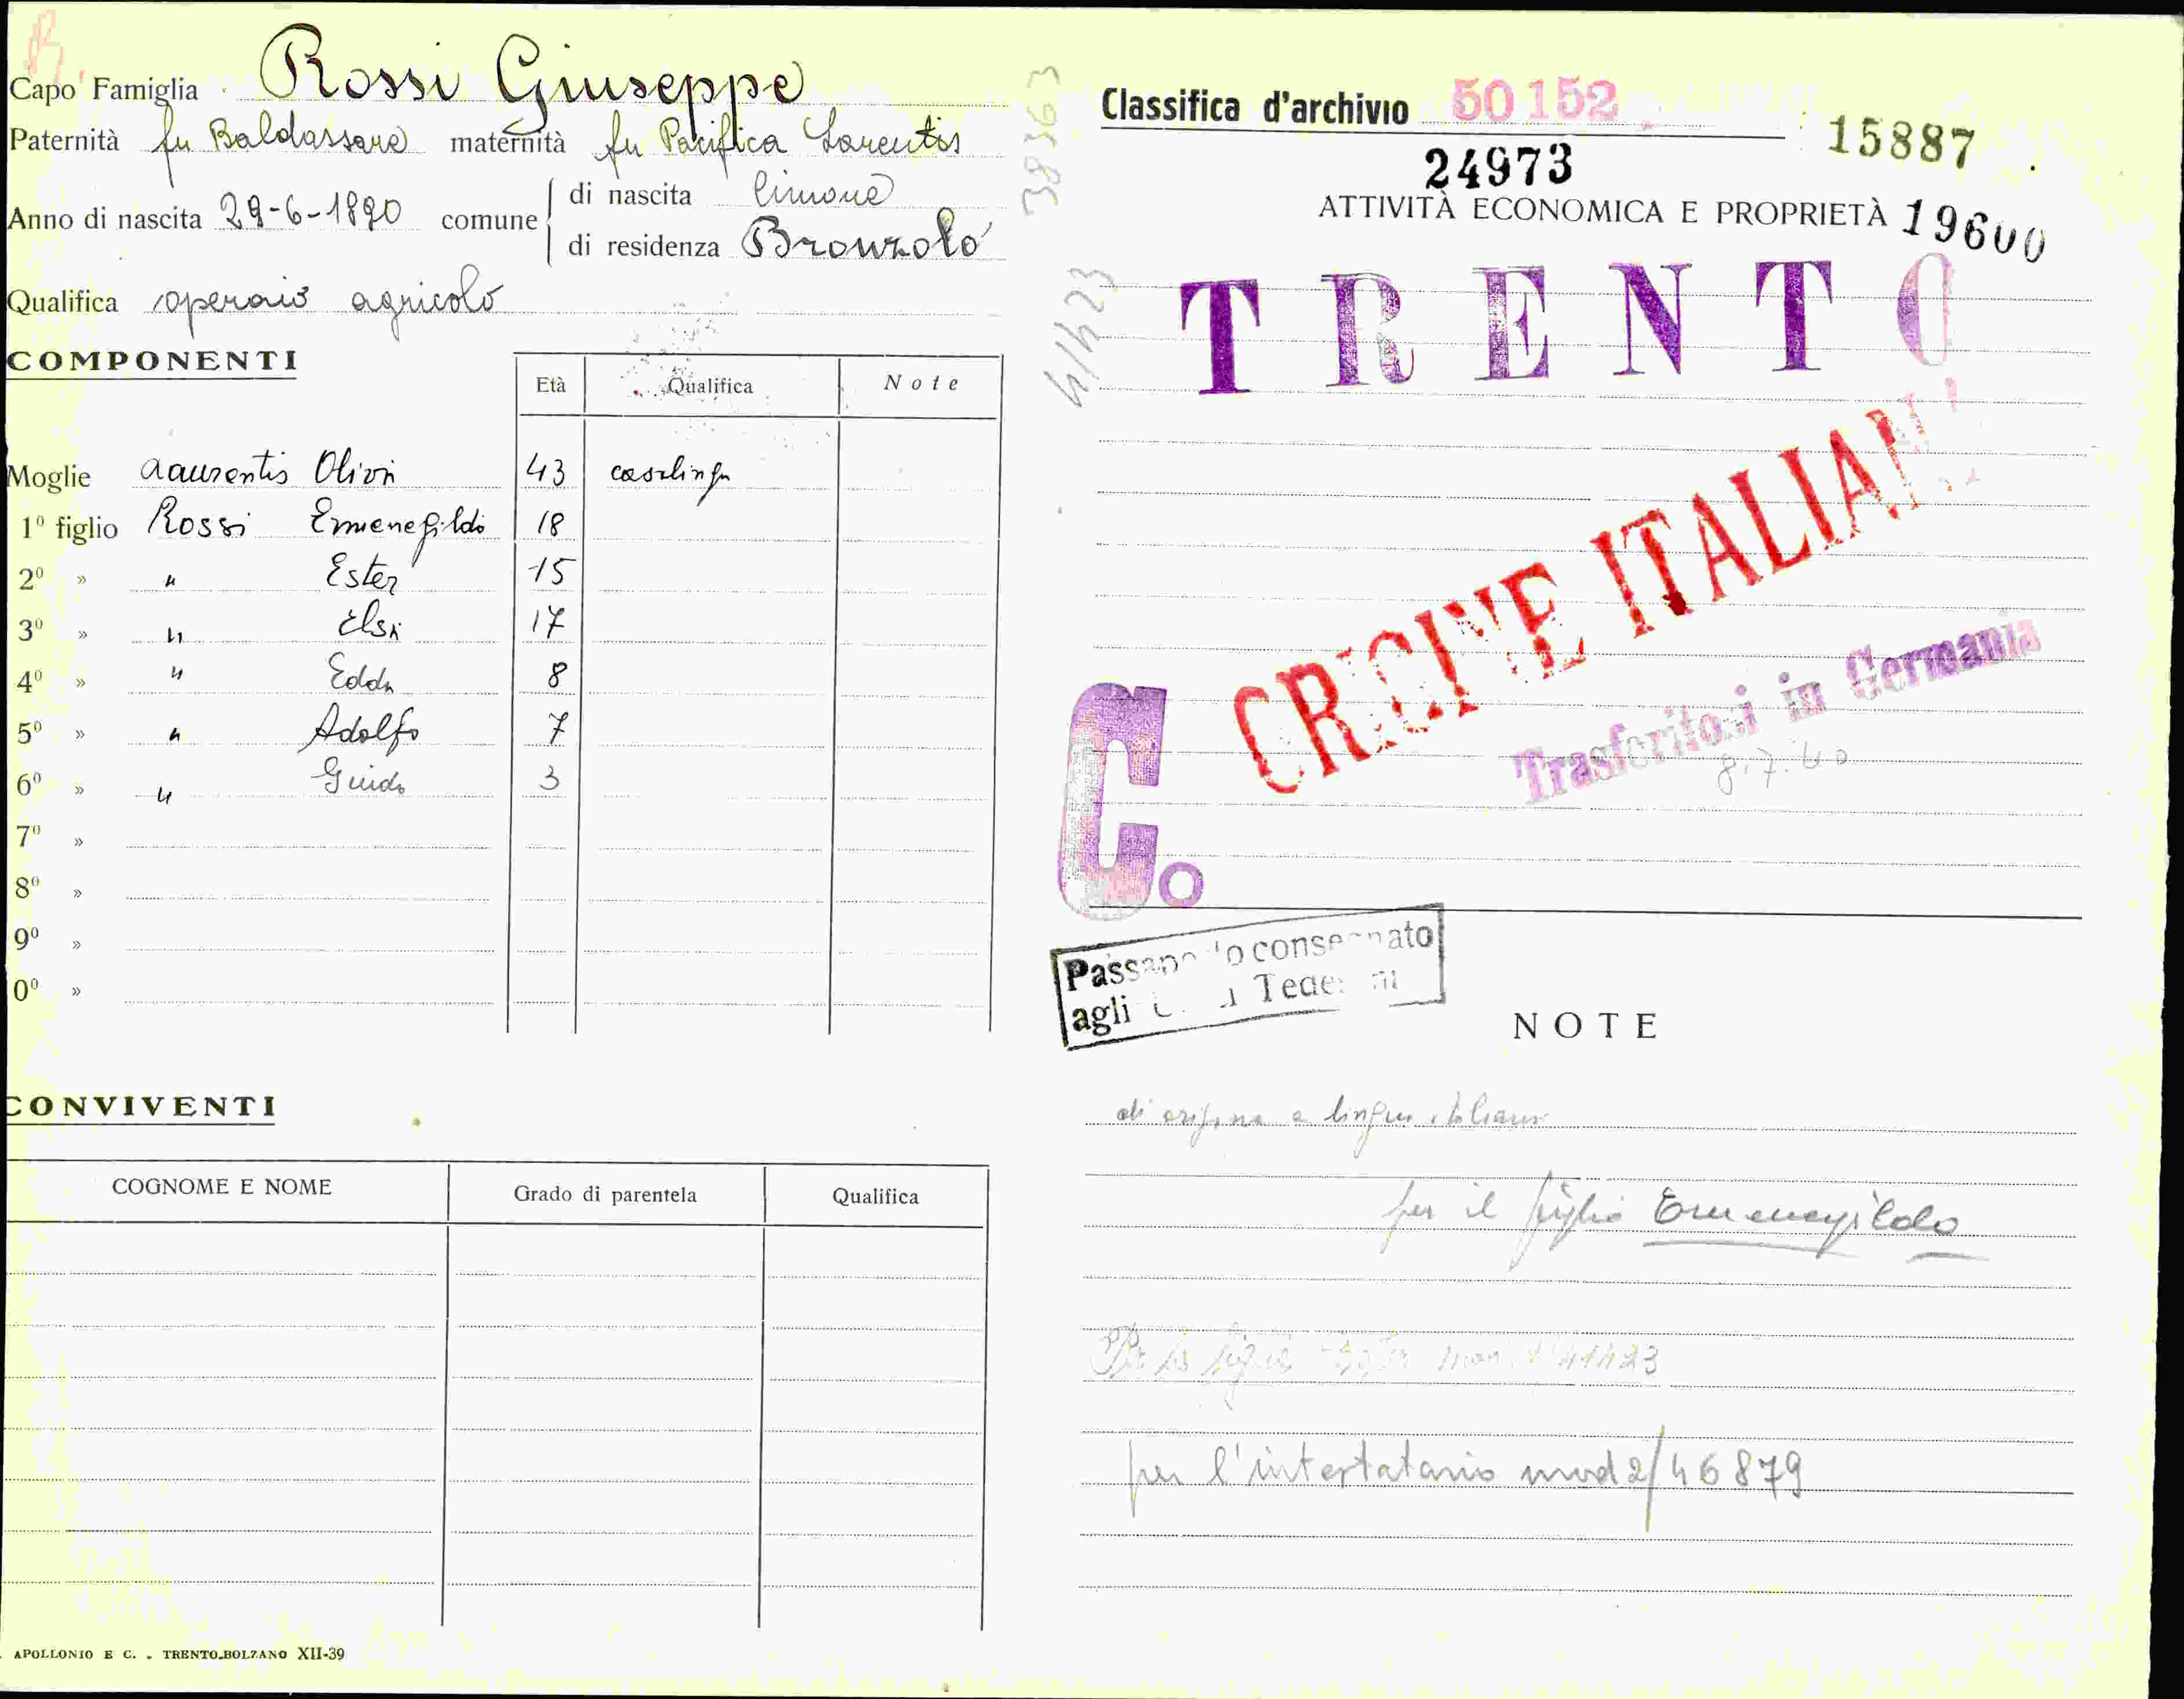 Capo Famiglia Rossi Giuseppe
Paternità fu Baldassare maternità fu Pacifica Laurentis
Anno di nascita 29-6-1890 comune di nascita Cimone
di residenza Bronzolo
Qualifica operaio agricolo
COMPONENTI
Età Qualifica Note
Moglie Laurentis 43 casalinga
1º figlio Rossi Ermenegildo 18
2º » " Ester 15
3º » " Elsa 17
4º » " Edda 8
5º » " Adolfo 7
6º » " Guido 3
7º »
8º »
9º »
0º »
CONVIVENTI
COGNOME E NOME Grado di parentela Qualifica
APOLLONIO E C. - TRENTO-BOLZANO XII-39
38363
41423
Classifica d'archivio 50152
15887
24973
ATTIVITÀ ECONOMICA E PROPRIETÀ 19600
TRENTO
ORIGINE ITALIANA
Trasferitosi in Germania
8.7.40
C.
Passaporto consegnato
agli Tedeschi
NOTE
di origine e lingua italiana
per il figlio Ermenegildo
Per la figlia Ester mod. 41423
per l'intestatario mod 2/46879